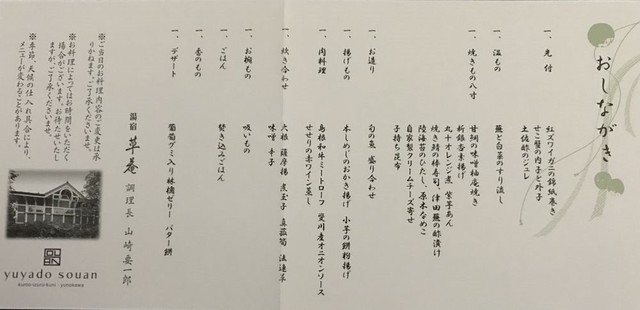 おしながき
一、先付
紅ズワイガニの錦紙巻き
せこ蟹の内子と外子
土佐酢のジュレ
一、温もの
蕪と白菜のすり流し
一、焼きもの八寸
甘鯛の味噌柚庵焼き
新銀杏素揚げ
丸十オレンジ煮 紫芋あん
焼き鯖の棒寿司、津田蕪の酢漬け
陸海苔のひたし、原木なめこ
自家製クリームチーズ寄せ
子持ち昆布
一、お造り
旬の魚 盛り合わせ
一、揚げもの
本しめじのおかき揚げ 小芋の餅粉揚げ
一、肉料理
島根和牛ミートローフ 斐川産オニオンソース
せせりの赤ワイン蒸し
一、炊き合わせ
大根 薩摩揚 煮玉子 真菰筍 法蓮草
味噌 辛子
一、お椀もの
吸い物
一、ごはん
炊き込みごはん
一、香のもの
一、デザート
葡萄グミ入り林檎ゼリー バター餅
湯宿 草庵 調理長 山崎要一郎
※ご当日のお料理内容のご変更は承
りかねます。ご了承くださいませ。
※お料理によってはお時間をいただく
場合がございます。お待たせいたし
ますが、ご了承くださいませ。
※季節、天候の仕入れ具合により、
メニューが変わることがあります。
yuyado souan